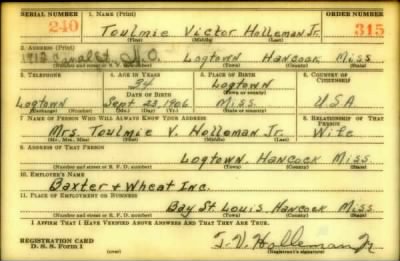 SERIAL NUMBER 1. NAME (Print) ORDER NUMBER
240 Toulmie Victor Holleman Jr. 315
(First) (Middle) (Last)
2. ADDRESS (Print)
1713 Canal St. N.O. Logtown Hancock Miss.
(Number and street or R. F. D. number) (Town) (County) (State)
3. TELEPHONE 4. AGE IN YEARS 5. PLACE OF BIRTH 6. COUNTRY OF CITIZENSHIP
34 Logtown
DATE OF BIRTH (Town or county)
Logtown Sept 23, 1906 Miss. USA
(Exchange) (Number) (Mo.) (Day) (Yr.) (State or country)
7. NAME OF PERSON WHO WILL ALWAYS KNOW YOUR ADDRESS 8. RELATIONSHIP OF THAT PERSON
Mrs. Toulmie V. Holleman Jr. Wife
(Mr., Mrs., Miss) (First) (Middle) (Last)
9. ADDRESS OF THAT PERSON
Logtown, Hancock Miss.
(Number and street or R. F. D. number) (Town) (County) (State)
10. EMPLOYER'S NAME
Baxter + Wheat Inc.
11. PLACE OF EMPLOYMENT OR BUSINESS
Bay St. Louis, Hancock Miss
(Number and street or R. F. D. number) (Town) (County) (State)
I AFFIRM THAT I HAVE VERIFIED ABOVE ANSWERS AND THAT THEY ARE TRUE.
REGISTRATION CARD
D. S. S. Form 1 T. V. Holleman Jr.
(over) (Registrant's signature)